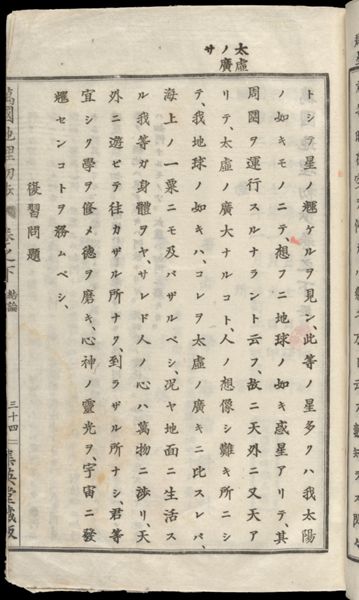 太虛
ノ廣
サ
トシテ星ノ輝ケルヲ見ン、此等ノ星多クハ我太陽
ノ如キモノニテ、想フニ地球ノ如キ惑星アリテ、其
周圍ヲ運行スルナラント云フ、故ニ天外ニ又天ア
リテ、太虛ノ廣大ナルコト、人ノ想像シ難キ所ニシ
テ、我地球ノ如キハ、コレヲ太虛ノ廣キニ比スレバ、
海上ノ一粟ニモ及バザルベシ、況ヤ地面ニ生活ス
ル我等ガ身體ヲヤ、サレド人ノ心ハ萬物ニ涉リ、天
外ニ遊ビテ往カザル所ナク、到ラザル所ナシ、君等
宜シク學ヲ修メ德ヲ磨キ、心神ノ靈光ヲ、宇宙ニ發
輝センコトヲ務ムベシ、
復習問題
萬國地理初步 卷之下 結論 三十四 集英堂藏版